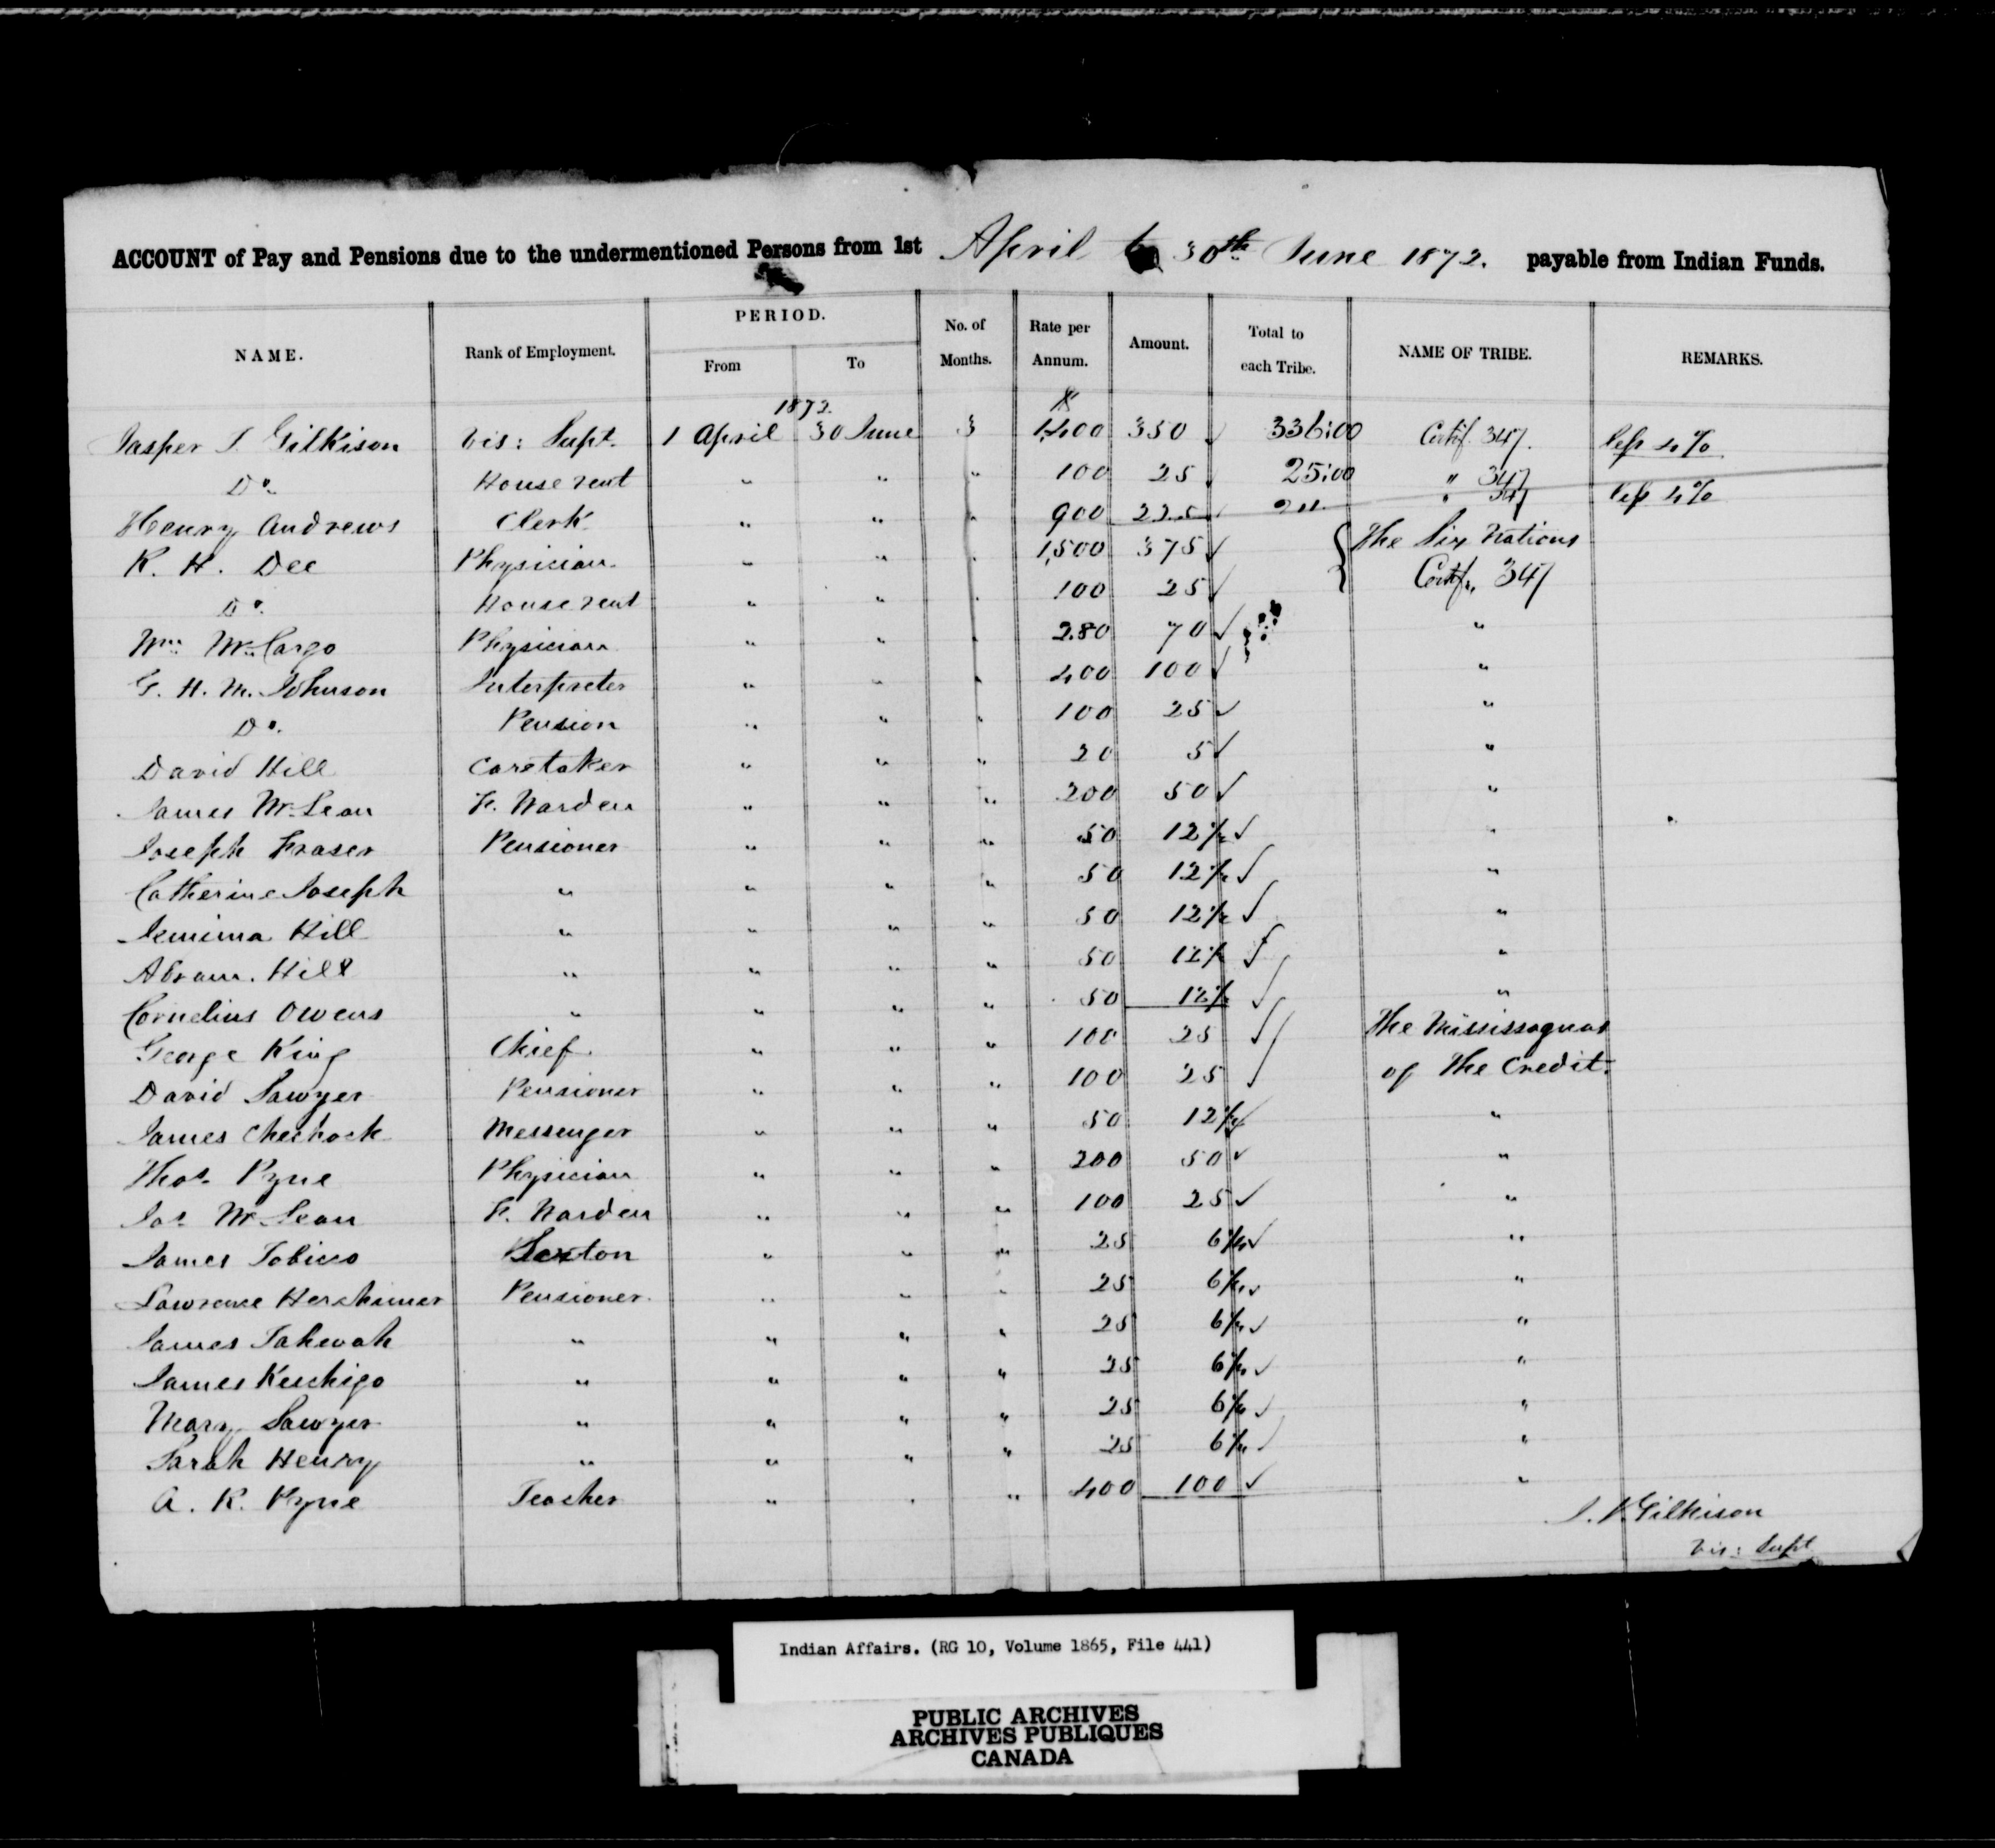 ACCOUNT of Pay and Pensions due to the undermentioned Persons from 1st April to 30th June 1872. payable from Indian Funds.
NAME. Rank of Employment. PERIOD. From To No. of Months. Rate per Annum. Amount. Total to each Tribe. NAME OF TRIBE. REMARKS.
1872. $
Jasper T. Gilkison Vis: Supt. 1 April 30 June 3 1,400 350 ✓ 336:00 Certif. 347. less 4%
Do. House rent " " " 100 25 ✓ 25:00 " 347
Henry Andrews Clerk " " " 900 225 ✓ " 347 less 4%
R. H. Dee Physician " " " 1,500 375 ✓ { The Six Nations
Do. House rent " " " 100 25 ✓ Certf. 347
Wm. McCargo Physician " " " 280 70 ✓ "
G. H. M. Johnson Interpreter " " " 400 100 ✓ "
Do. Pension " " " 100 25 ✓ "
David Hill Caretaker " " " 20 5 ✓ "
James McLean F. Warden " " " 200 50 ✓ "
Joseph Fraser Pensioner " " " 50 12 ½ ✓ "
Catherine Joseph " " " " 50 12 ½ ✓ "
Jemima Hill " " " " 50 12 ½ ✓ "
Abram. Hill " " " " 50 12 ½ ✓ "
Cornelius Owens " " " " 50 12 ½ ✓ "
George King Chief " " " 100 25 ✓ The Mississaguas
David Sawyer Pensioner " " " 100 25 ✓ of the Credit.
James Chechock Messenger " " " 50 12 ½ ✓ "
Thos. Pyne Physician " " " 200 50 ✓ "
Jas. McLean F. Warden " " " 100 25 ✓ "
James Tobico Sexton " " " 25 6 ¼ ✓ "
Lawrence Herchimer Pensioner " " " 25 6 ¼ ✓ "
James Tahewah " " " " 25 6 ¼ ✓ "
James Keechigo " " " " 25 6 ¼ ✓ "
Mary Sawyer " " " " 25 6 ¼ ✓ "
Sarah Henry " " " " 25 6 ¼ ✓ "
A. K. Pyne Teacher " " " 400 100 ✓ "
J. T. Gilkison
Vis: Supt
Indian Affairs. (RG 10, Volume 1865, File 441)
PUBLIC ARCHIVES
ARCHIVES PUBLIQUES
CANADA